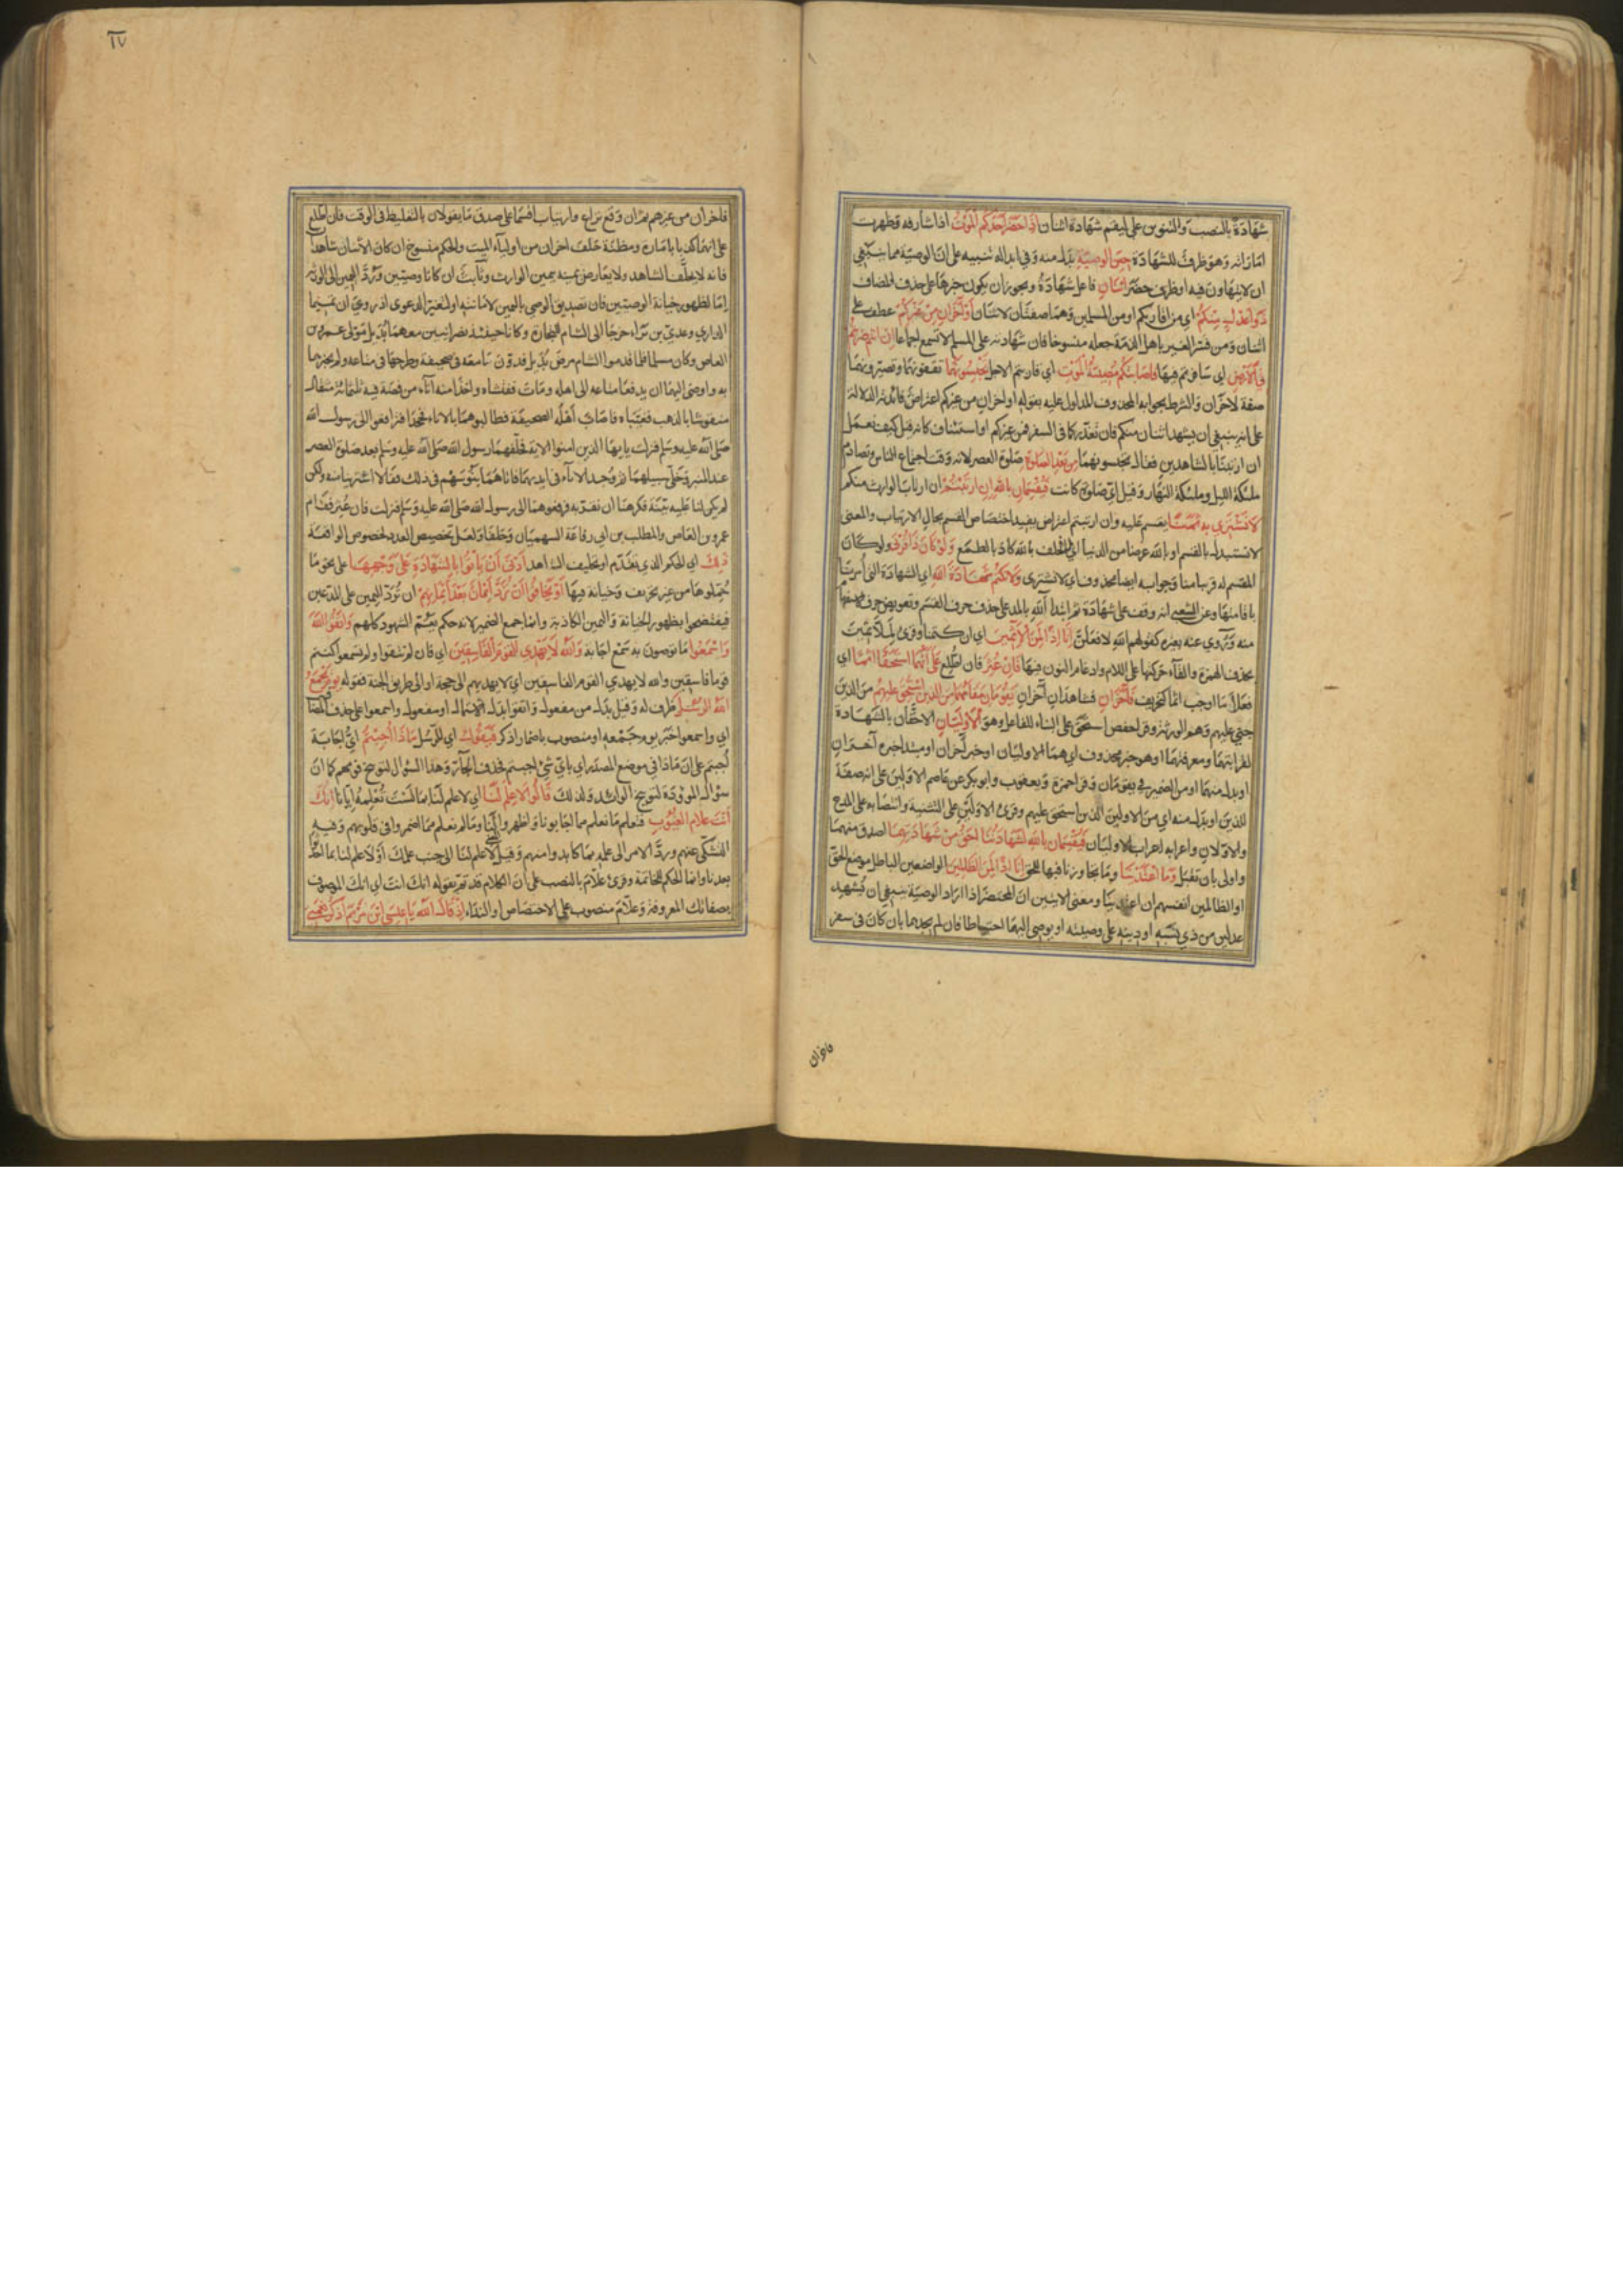 شهادةً بالنصب والتنوين على ليقم شهادة اثنان اذا حضر احدكم الموت اذا شارفه وظهرت
اماراته وهو ظرف للشهادة حين الوصية بدل منه وفي ابداله تنبيه على ان الوصية مما ينبغي
ان لا يتهاون فيه او ظرف حضر اثنان فاعل شهادة ويجوز ان يكون خبرها على حذف المضاف
ذوا عدل منكم اي من اقاربكم او من المسلمين وهما صفتان لاثنان او آخران من غيركم عطف على
اثنان ومن فسر الغير باهل الذمة جعله منسوخا فان شهادته على المسلم لا تسمع اجماعا ان انتم ضربتم
في الارض اي سافرتم فيها فاصابتكم مصيبة الموت اي قاربتم الاجل تحبسونهما تقفونهما وتصبرونهما
صفة لآخران والشرط بجوابه المحذوف المدلول عليه بقوله او آخران من غيركم اعتراض فائدته الدلالة
على انه ينبغي ان يشهد اثنان منكم فان تعذر كما في السفر فمن غيركم او استئناف كانه قيل كيف نعمل
ان ارتبنا بالشاهدين فقال تحبسونهما من بعد الصلوة صلوة العصر لانه وقت اجتماع الناس وتصادم
ملئكة الليل وملئكة النهار وقيل اي صلوة كانت فيقسمان بالله ان ارتبتم ان ارتاب الوارث منكم
لا نشتري به ثمنا يقسم عليه وان ارتبتم اعتراض يفيد اختصاص القسم بحال الارتياب والمعنى
لا نستبدل بالقسم او بالله عرضا من الدنيا اي لا نحلف بالله كاذبا لطمع ولو كان ذا قربى ولو كان
المقسم له قريبا منا وجوابه ايضا محذوف اي لا نشتري ولا نكتم شهادة الله اي الشهادة التي امرنا
باقامتها وعن الشعبي انه وقف على شهادة ثم ابتدا آلله بالمد على حذف حرف القسم وتعويض حرف الاستفهام
منه وروي عنه بغيره كقولهم الله لافعلن انا اذا لمن الآثمين اي ان كتمنا وقرئ لملاثمين
بحذف الهمزة والقاء حركتها على اللام وادغام النون فيها فان عثر فان اطلع على انهما استحقا اثما اي
فعلا ما اوجب اثما كتحريف فآخران فشاهدان آخران يقومان مقامهما من الذين استحق عليهم من الذين
جني عليهم وهم الورثة وقرا حفص استحق على البناء للفاعل وهو الاوليان الاحقان بالشهادة
لقرابتهما ومعرفتهما وهو خبر محذوف اي هما الاوليان او خبر آخران او مبتدا خبره آخران
او بدل منهما او من الضمير في يقومان وقرا حمزة ويعقوب وابو بكر عن عاصم الاولين على انه صفة
للذين او بدل منه اي من الاولين الذين استحق عليهم وقرئ الاولين على التثنية وانتصابه على المدح
والاولان واعرابه اعراب الاوليان فيقسمان بالله لشهادتنا احق من شهادتهما اصدق منهما
واولى بان تقبل وما اعتدينا وما تجاوزنا فيها الحق انا اذا لمن الظالمين الواضعين الباطل موضع الحق
او الظالمين انفسهم ان اعتدينا ومعنى الايتين ان المحتضر اذا اراد الوصية ينبغي ان يشهد
عدلين من ذي نسبه او دينه على وصيته او يوصي اليهما احتياطا فان لم يجدهما بان كان في سفر
فاخران
١٧
فاخران من غيرهم ثم ان وقع نزاع وارتياب اقسما على صدق ما يقولان بالتغليظ في الوقت فان اطلع
على انهما كذبا بامارة ومظنة حلف اخران من اولياء الميت والحكم منسوخ ان كان الاثنان شاهدا
فانه لا يحلف الشاهد ولا يعارض يمينه بيمين الوارث وثابت ان كانا وصيين ورد اليمين الى الورثة
اما لظهور خيانة الوصيين فان تصديق الوصي باليمين لامانته او لتغير الدعوى اذ روي ان تميما
الداري وعدي بن بداء خرجا الى الشام للتجارة وكانا حينئذ نصرانيين ومعهما بديل مولى عمرو بن
العاص وكان مسلما فلما قدموا الشام مرض بديل فدون ما معه في صحيفة وطرحها في متاعه ولم يخبرهما
به واوصى اليهما ان يدفعا متاعه الى اهله ومات ففتشاه واخذا منه اناء من فضة فيه ثلثمائة مثقال
منقوشا بالذهب فغيباه فاصاب اهله الصحيفة فطالبوهما بالاناء فجحدا فترافعوا الى رسول الله
صلى الله عليه وسلم فنزلت يا ايها الذين امنوا الاية فحلفهما رسول الله صلى الله عليه وسلم بعد صلوة العصر
عند المنبر وخلى سبيلهما ثم وجد الاناء في ايديهما فاتاهما بنو سهم في ذلك فقالا اشتريناه منه ولكن
لم يكن لنا عليه بينة فكرهنا ان نقر به فرفعوهما الى رسول الله صلى الله عليه وسلم فنزلت فان عثر فقام
عمرو بن العاص والمطلب بن ابي رفاعة السهميان وحلفا ولعل تخصيص العدد لخصوص الواقعة
ذلك اي الحكم الذي تقدم او تحليف الشاهد ادنى ان ياتوا بالشهادة على وجهها على نحو ما
حملوها من غير تحريف وخيانة فيها او يخافوا ان ترد ايمان بعد ايمانهم ان ترد اليمين على المدعين
فيفتضحوا بظهور الخيانة واليمين الكاذبة وانما جمع الضمير لانه حكم يعم الشهود كلهم واتقوا الله
واسمعوا ما توصون به سمع اجابة والله لا يهدي القوم الفاسقين اي فان لم تتقوا ولم تسمعوا كنتم
قوما فاسقين والله لا يهدي القوم الفاسقين اي لا يهديهم الى حجة او الى طريق الجنة فقوله يوم يجمع
الله الرسل ظرف له وقيل بدل من مفعول واتقوا بدل الاشتمال او مفعول واسمعوا على حذف المضاف
اي واسمعوا خبر يوم جمعه او منصوب باضمار اذكر فيقول اي للرسل ماذا اجبتم اي اجابة
اجبتم على ان ماذا في موضع المصدر او باي شئ اجبتم فحذف الجار وهذا السؤال لتوبيخ قومهم كما ان
سؤال الموؤدة لتوبيخ الوائد ولذلك قالوا لا علم لنا اي لا علم لنا بما لست تعلمه ايانا انك
انت علام الغيوب فتعلم ما نعلم مما اجابونا واظهروا لنا وما لم نعلم مما اضمروا في قلوبهم وفيه
التشكي عنهم ورد الامر الى علمه بما كابدوا منهم وقيل لا علم لنا الى جنب علمك او لا علم لنا بما احدثوا
بعدنا وانما الحكم للخاتمة وقرئ علام بالنصب على ان الكلام قد تم بقوله انك انت اي انك الموصوف
بصفاتك المعروفة وعلام منصوب على الاختصاص او النداء اذ قال الله يا عيسى ابن مريم اذكر نعمتي